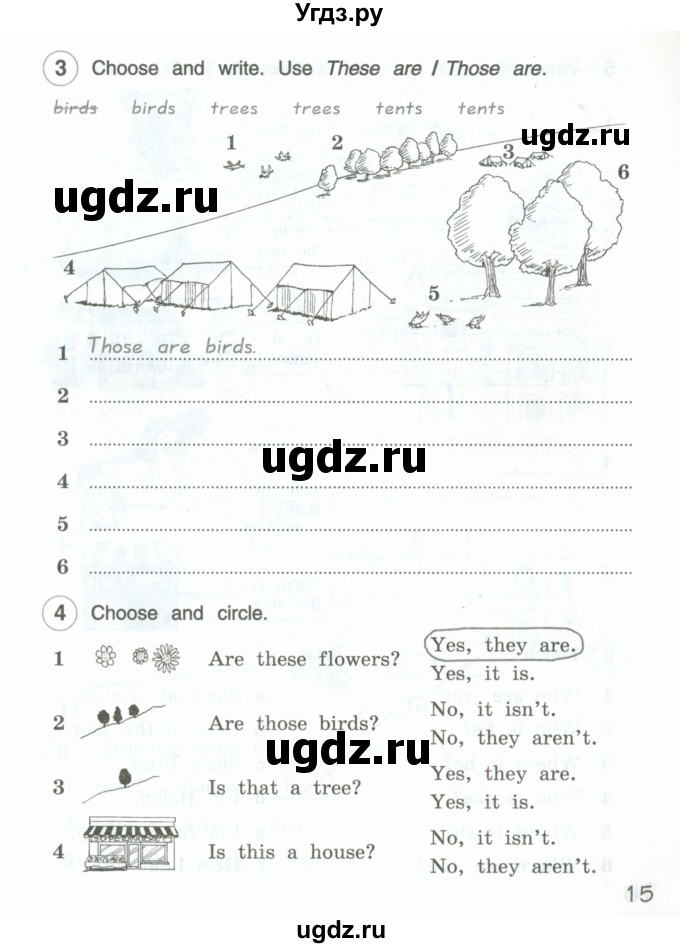 Угдз.ру
3 Choose and write. Use These are / Those are.
birds birds trees trees tents tents
ugdz.ru
1
2
3
6
ugdz.ru
4
5
1 Those are birds.
2
3
ugdz.ru
4
5
6
4 Choose and circle.
1 Are these flowers? Yes, they are.
Yes, it is.
2 Are those birds? No, it isn't.
No, they aren't.
ugdz.ru
3 Is that a tree? Yes, they are.
Yes, it is.
4 Is this a house? No, it isn't.
No, they aren't.
15
ugdz.ru